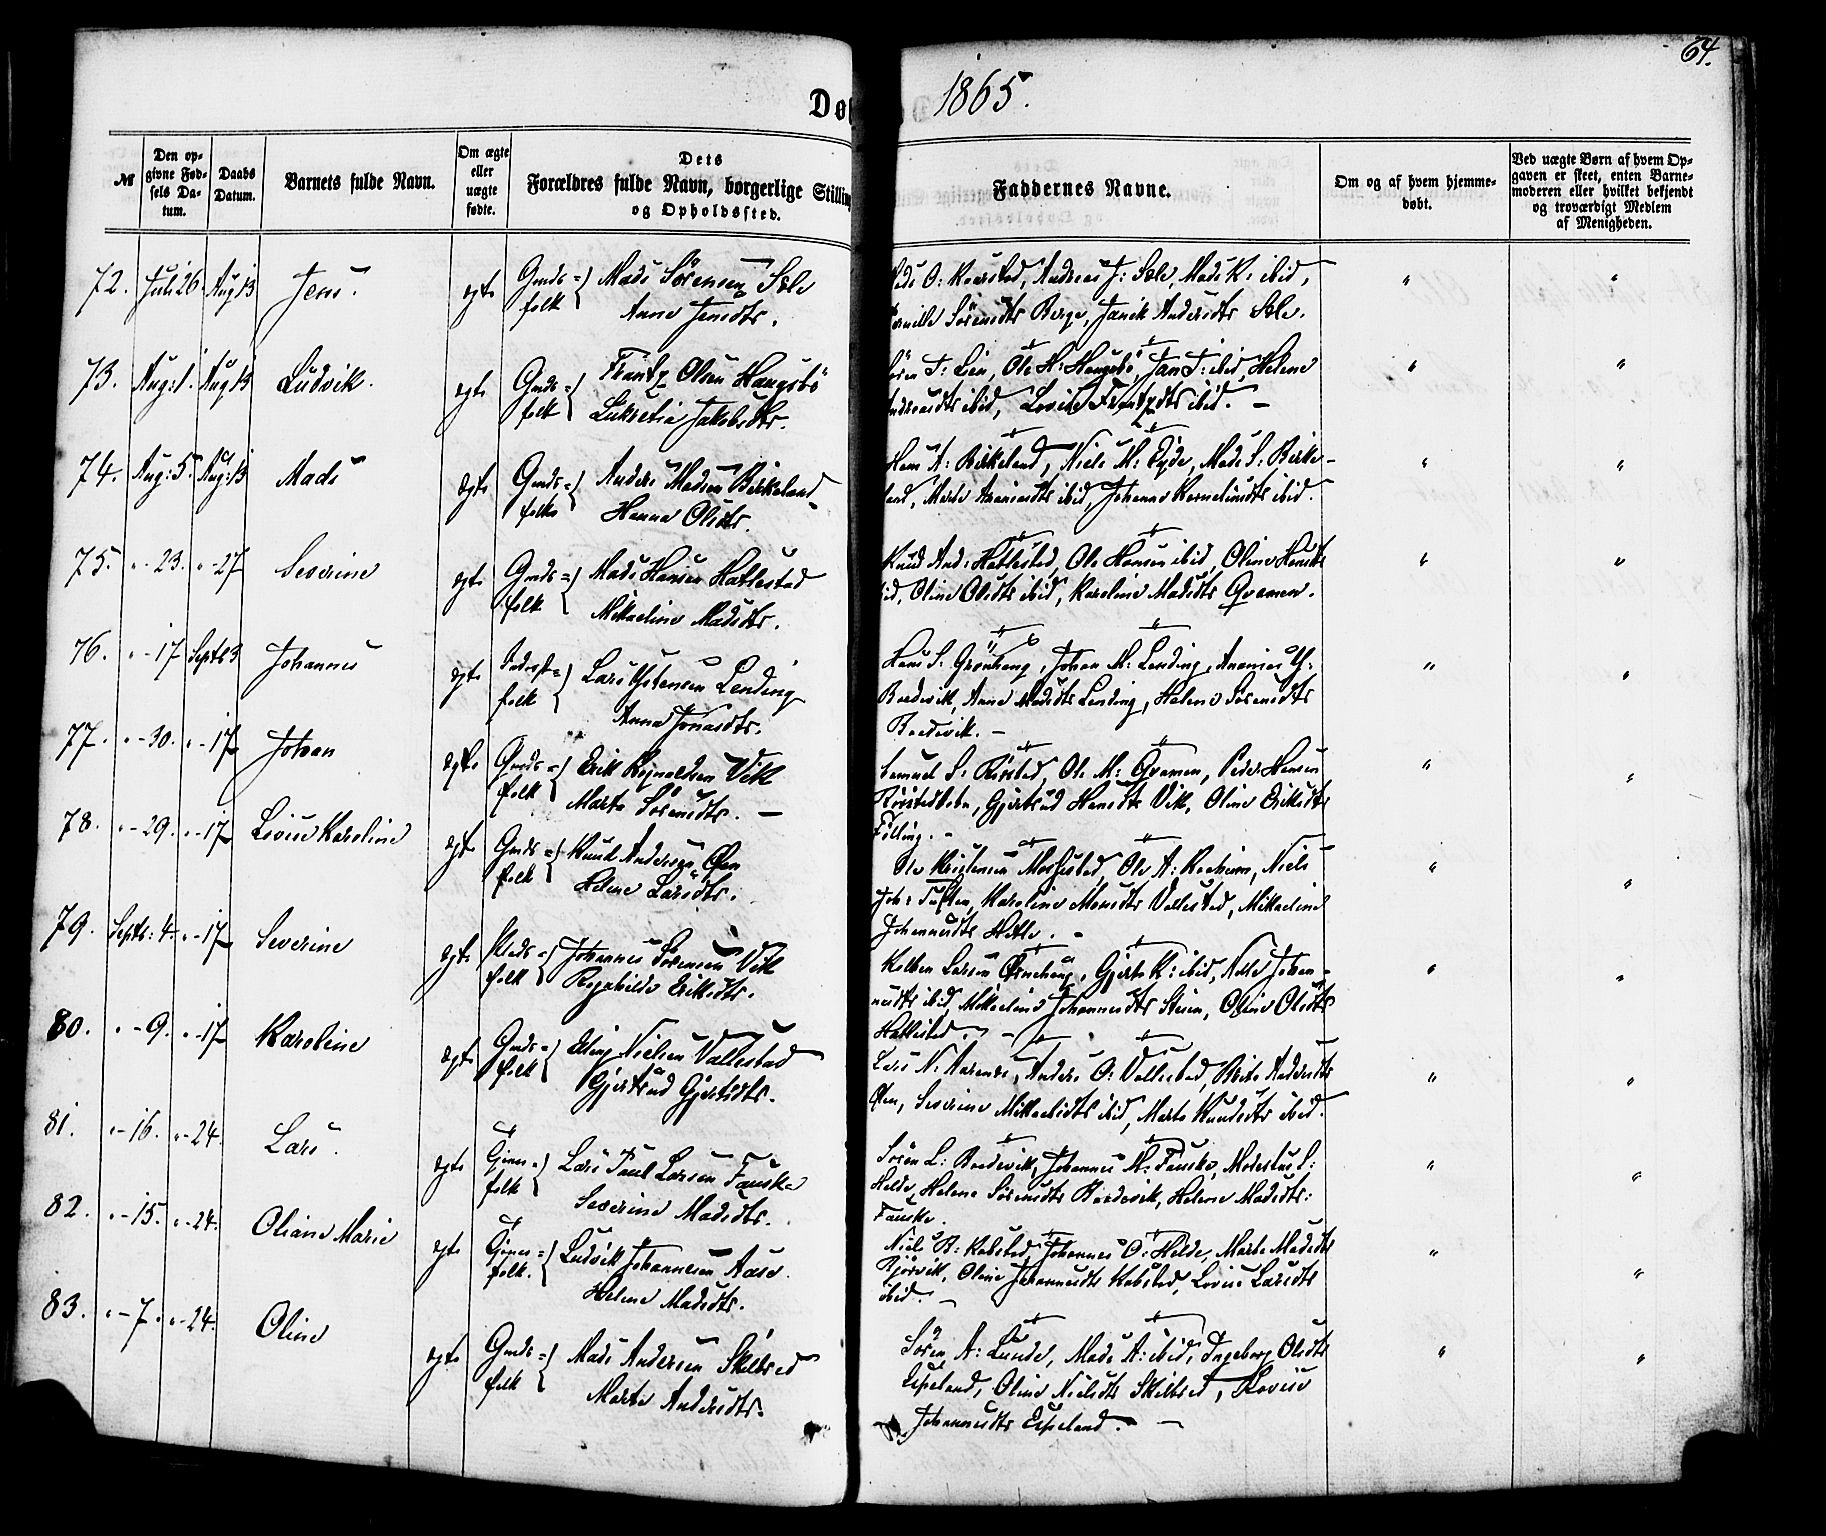 64.
Dø 1865.
№
Den op-
givne Fød-
sels Da-
tum.
Daabs
Datum.
Barnets fulde Navn.
Om ægte
eller
uægte
fødte.
Dets
Forældres fulde Navn, borgerlige Stilling
og Opholdssted.
Faddernes Navne.
Om og af hvem hjemme-
døbt.
Ved uægte Børn af hvem Op-
gaven er skeet, enten Barne-
moderen eller hvilket bekjendt
og troværdigt Medlem
af Menigheden.
72. Juli 26 Aug 13 Jens. egte Gmds= folk Mads Sörensen Sæle
Anne Jensdtr.
Andreas J: Sæle, Mads K: ibid,
Sörensdtr Berge, Andersdtr Sæle.
73. Aug: 1. Aug 13 Ludvik. egte Gmds= folk Frantz Olsen Haugsbö
Lukretia Jakobsdtr.
Lien, Ole H: Haugsbö, Jan ibid, Helene
ibid, Lovise Frantzdtr ibid. —
74. Aug: 5. Aug: 13 Mads egte Gmds= folk Anders Madsen Birkeland
Hanna Olsdtr.
Hans A: Birkeland, Niels M: Eyde, Mads S: Birke-
land, Marte ibid, Johanne Korneliusdtr ibid.
75. " - 23. " - 27 Severine egte Gmds= folk Mads Hansen Hatlestad
Mikaeline Madsdtr.
Knud And: Hatlestad, Ole Hansen ibid, Oline Hansdtr
ibid, Oline Olsdtr ibid, Karoline Madsdtr Qvamen.
76. " - 17 Septb 3 Johannes egte folk Lars Lending
Anna Jonasdtr.
Hans S: Grönhaug, Johan M: Lending, Ananias
Bredevik, Anne Madsdtr Lending, Helene Sörensdtr
Bredevik. —
77. " - 30. " - 17 Johan egte Gmds= folk Erik Rognaldsen Vik
Marta Sörensdtr. —
Samuel S: Rörstad, Ole M: Qvamen, Peder Hansen
Gjertrud Hansdtr Vik, Oline Eriksdtr
Fölling. —
78. " - 29. " - 17 Lovise Karoline egte Gmds= folk Knud Andersen Øen
Helene Larsdtr.
Ole Kristensen Ole A: Niels
Joh: Karoline Monsdtr Vallestad, Mikkeline
Johannesdtr Hatle. —
79. Septb: 4. " - 17 Severine egte Plads= folk Johannes Sörensen Vik
Ragnhilde Eriksdtr.
Kolben Larsen Grönhaug, Gjerte K: ibid, Johan-
nesdtr ibid, Mikaeline Johannesdtr Steien, Oline Olsdtr
Hatlestad. —
80. " - 9. " - 17 Karoline egte Gmds= folk Eling Nielsen Vallestad
Gjertrud Gjertsdtr.
Lars N: Anders O: Vallestad, Brite Andersdtr
Øen, Severine Mikkelsdtr ibid, Marte Knudsdtr ibid.
81. " - 16. " - 24. Lars. egte folk Lars Paul Larsen Fauske
Severine Madsdtr.
Sören L: Bredevik, Johannes M: Fauske, Modestus S:
Helle, Helene Sörensdtr Bredevik, Helene Madsdtr:
Fauske.
82. " - 15. " - 24. Oliane Marie egte folk. Ludvik Johannesen Aase.
Helene Madsdtr.
Niels B: Kobstad, Johannes O: Helde, Marte Madsdtr
Bjørvik, Oline Johannesdtr Kobstad, Lovise Larsdtr
ibid. —
83. " - 7. " - 24. Oline egte Gmds= folk Mads Andersen Skilbred
Marte Andersdtr.
Sören A: Lunde, Mads A: ibid, Ingeborg Olsdtr
Espeland, Oline Nielsdtr Skilbred, Lovise
Johannesdtr Espeland. —